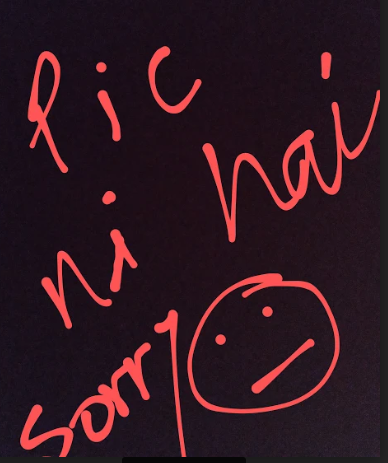 Pic
ni hai
sorry